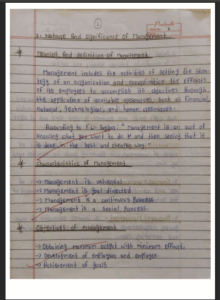 1. Nature and significance of Management
Meaning and definition of management
Management includes the activities of setting the stra-
tegy of an organisation and coordinating the efforts
of its employees to accomplish its objectives through
the application of available resources, such as financial,
natural, technological, and human resources.
According to F.W. Taylor: "Management is an art of
knowing what you want to do and then seeing that it
is done in the best and cheapest way."
Characteristics of management
→ Management is universal
→ Management is goal directed
→ Management is a continuous process
→ Management is a social process
Objectives of management
→ Obtaining maximum output with minimum efforts
→ Development of employees and employer
→ Achievement of goals